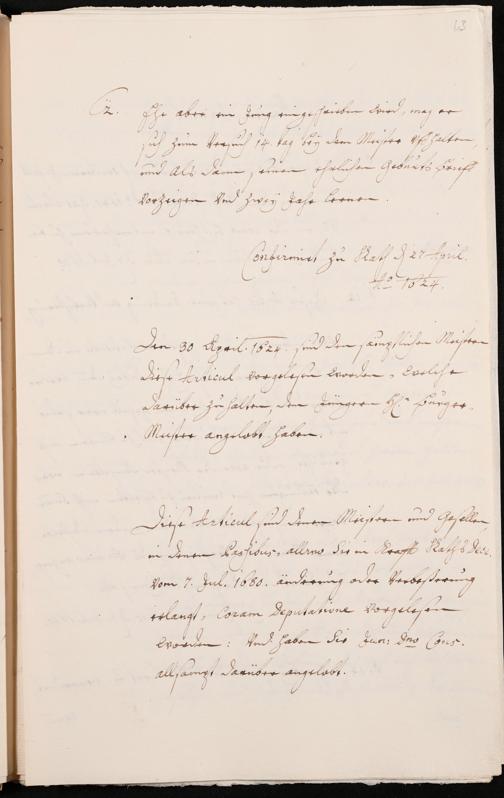 63
12. Ehe aber ein Jung eingeschrieben wird, mag er
sich zum Versuch 14. tag bey dem Meister uffhalten,
und als dann seinen ehrlichen Geburts Brieff
vorzeigen und zwey Jahr lernen.
Confirmirt zu Rath d. 27 April.
Ao 1624.
Den 30 April. 1624. sind den sämptlichen Meistern
diese Articul vorgelesen worden, welche
darüber zuhalten, dem Jüngern Hn Burger-
Meister angelobt haben.
Diese Articul sind denen Meistern und Gesellen,
in denen Passibus, allwo Sie in Krafft Rath's Decr.
vom 7. Jul. 1680. änderung oder Verbesserung
erlangt, Coram Deputatione vorgelesen
worden: und haben Sie Jun: Dno Cons.
allsampt darüber angelobt.